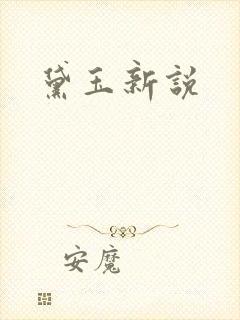 黛玉新說
安魔